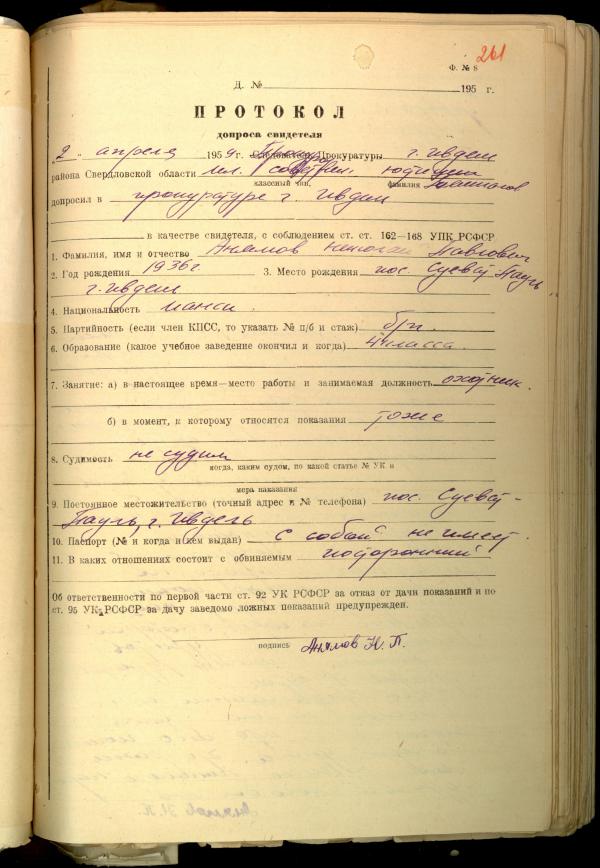 261
Ф. № 8
Д. № 195 г.
ПРОТОКОЛ
допроса свидетеля
"2" апреля 1959 г. Следователь Прокуратуры г. Ивдель
района Свердловской области мл. советник юстиции
классный чин, фамилия
допросил в прокуратуре г. Ивдель
в качестве свидетеля, с соблюдением ст. ст. 162—168 УПК РСФСР
1. Фамилия, имя и отчество Анямов Павлович
2. Год рождения 1936 г. 3. Место рождения пос. Суеват-Пауль
г. Ивдель
4. Национальность манси.
5. Партийность (если член КПСС, то указать № п/б и стаж) б/п.
6. Образование (какое учебное заведение окончил и когда) 4 класса.
7. Занятие: а) в настоящее время—место работы и занимаемая должность охотник.
б) в момент, к которому относятся показания тоже
8. Судимость не судим
когда, каким судом, по какой статье № УК и
мера наказания
9. Постоянное местожительство (точный адрес и № телефона) пос. Суеват-
Пауль, г. Ивдель
10. Паспорт (№ и когда и кем выдан) с собой не имеет.
11. В каких отношениях состоит с обвиняемым посторонний
Об ответственности по первой части ст. 92 УК РСФСР за отказ от дачи показаний и по
ст. 95 УК РСФСР за дачу заведомо ложных показаний предупрежден.
подпись Анямов Н. П.